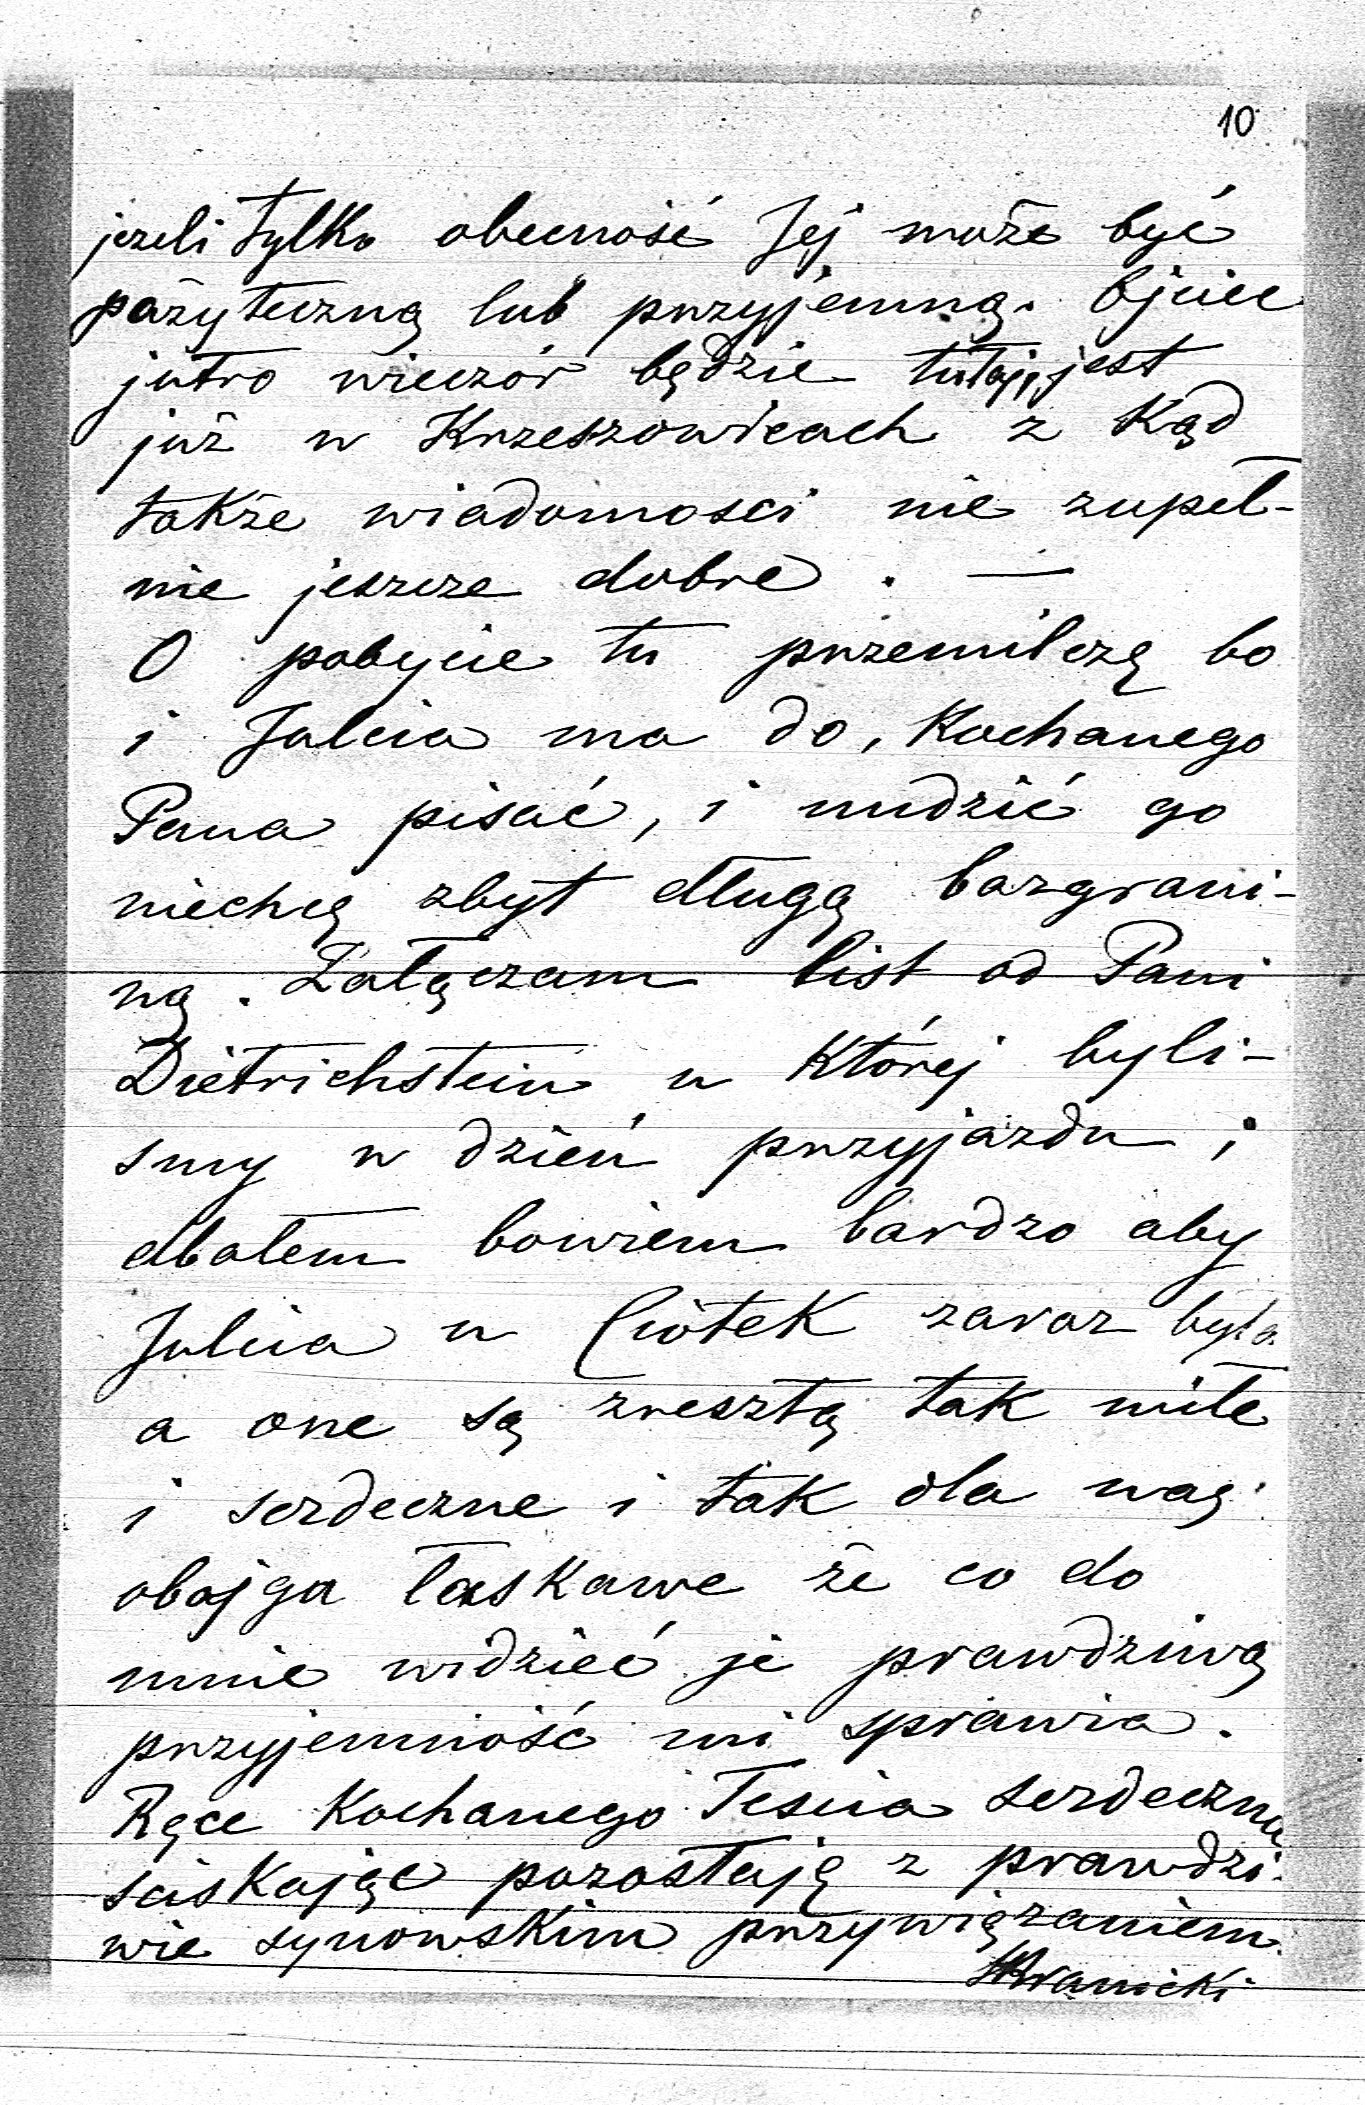 10
jezeli tylko obecność Jej może być
pożyteczną lub przyjemną. Ojciec
jutro wieczór będzie tutaj, jest
już w Krzeszowicach z kąd
także wiadomosci nie zupeł-
nie jeszcze dobre. —
O pobycie tu przemilczę bo
i Julcia ma do, Kochanego
Pana pisać, i nudzić go
niechcę zbyt długą bazgrani-
ną. Załączam list od Pani
Dietrichstein u której byli-
smy w dzień przyjazdu;
dbałem bowiem bardzo aby
Julcia u Ciotek zaraz była
a one są zresztą tak miłe
i serdeczne i tak dla nas
obojga łaskawe że co do
mnie widzieć je prawdziwą
przyjemność mi sprawia.
Ręce Kochanego Tescia serdecznie
sciskając pozostaję z prawdzi-
wie synowskim przywiązaniem
Branicki